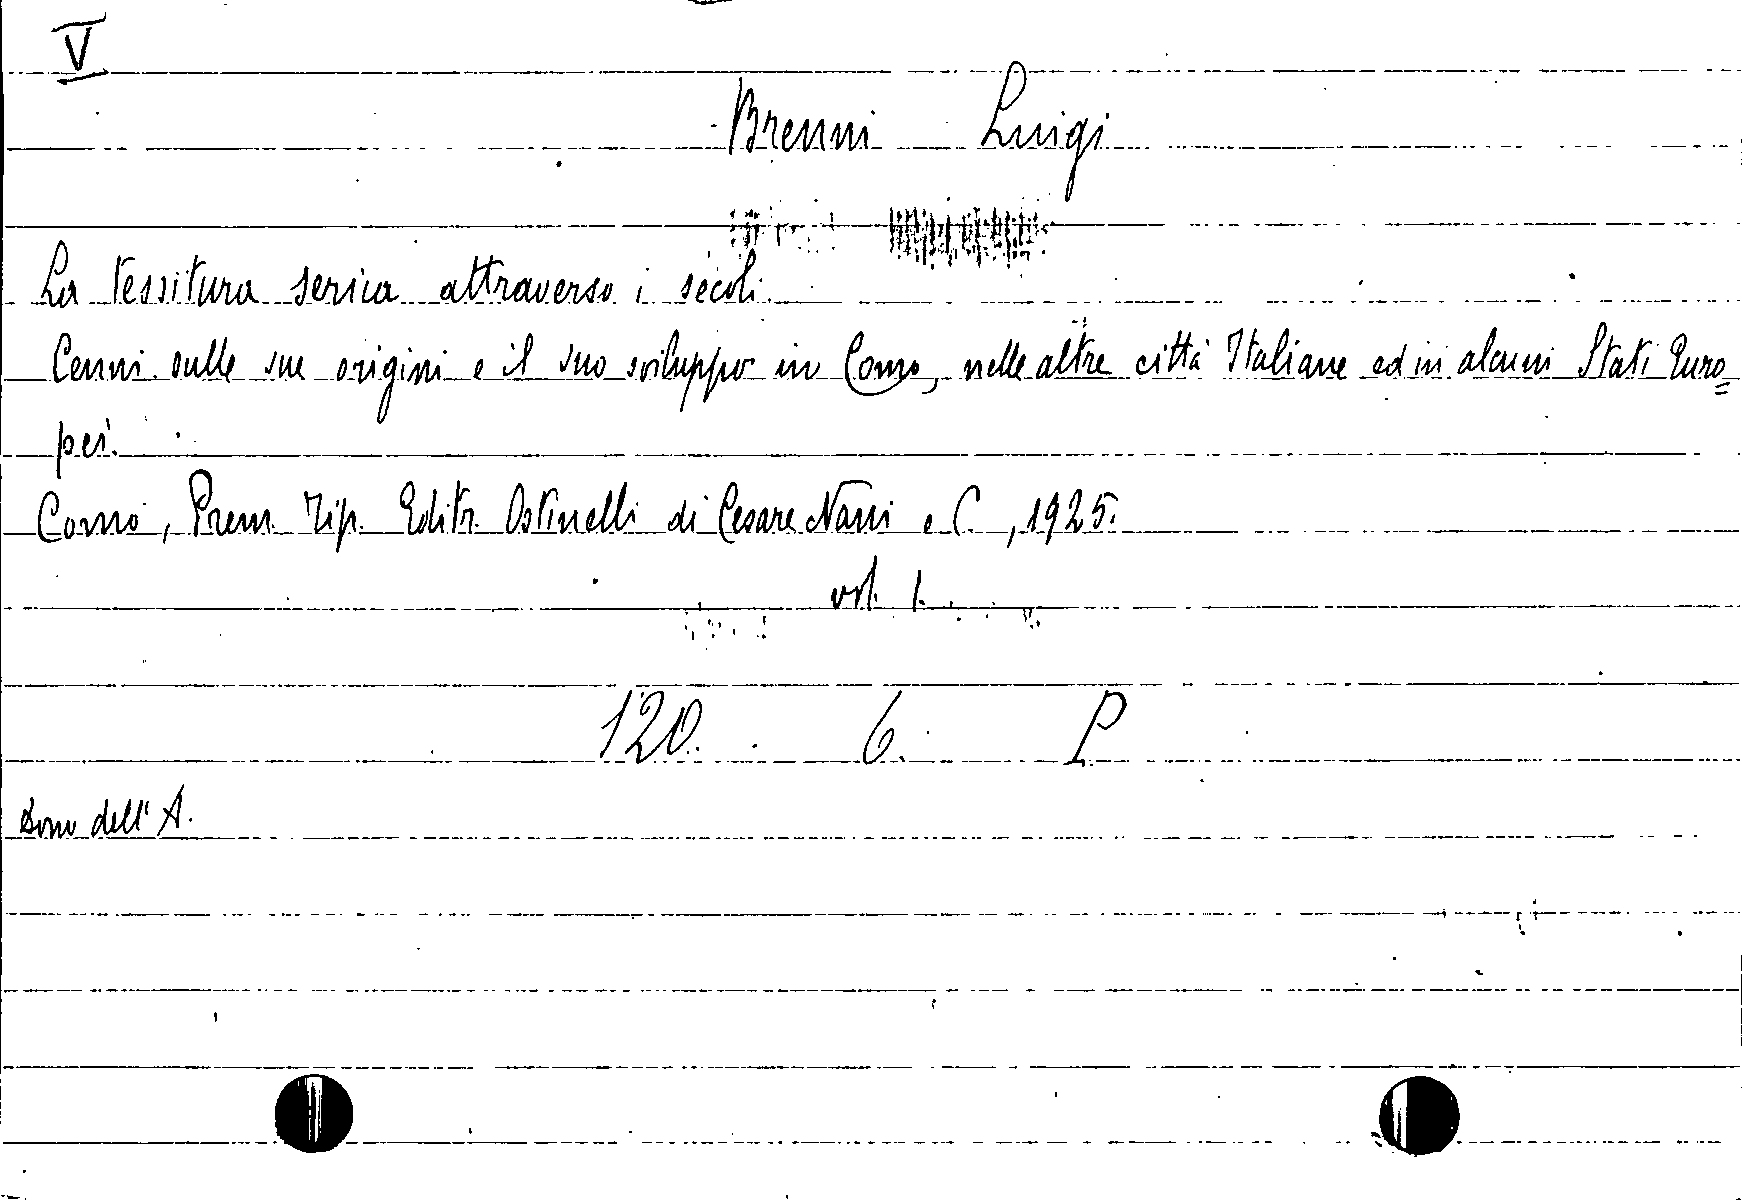 V
Brenni Luigi
La tessitura serica attraverso i secoli.
Cenni sulle sue origini e il suo sviluppo in Como, nelle altre città Italiane ed in alcuni Stati Euro=
pei.
Como, Prem. Tip. Editr. Ostinelli di Cesare Nani e C., 1925.
vol. 1.
120. 6. P
Dono dell'A.